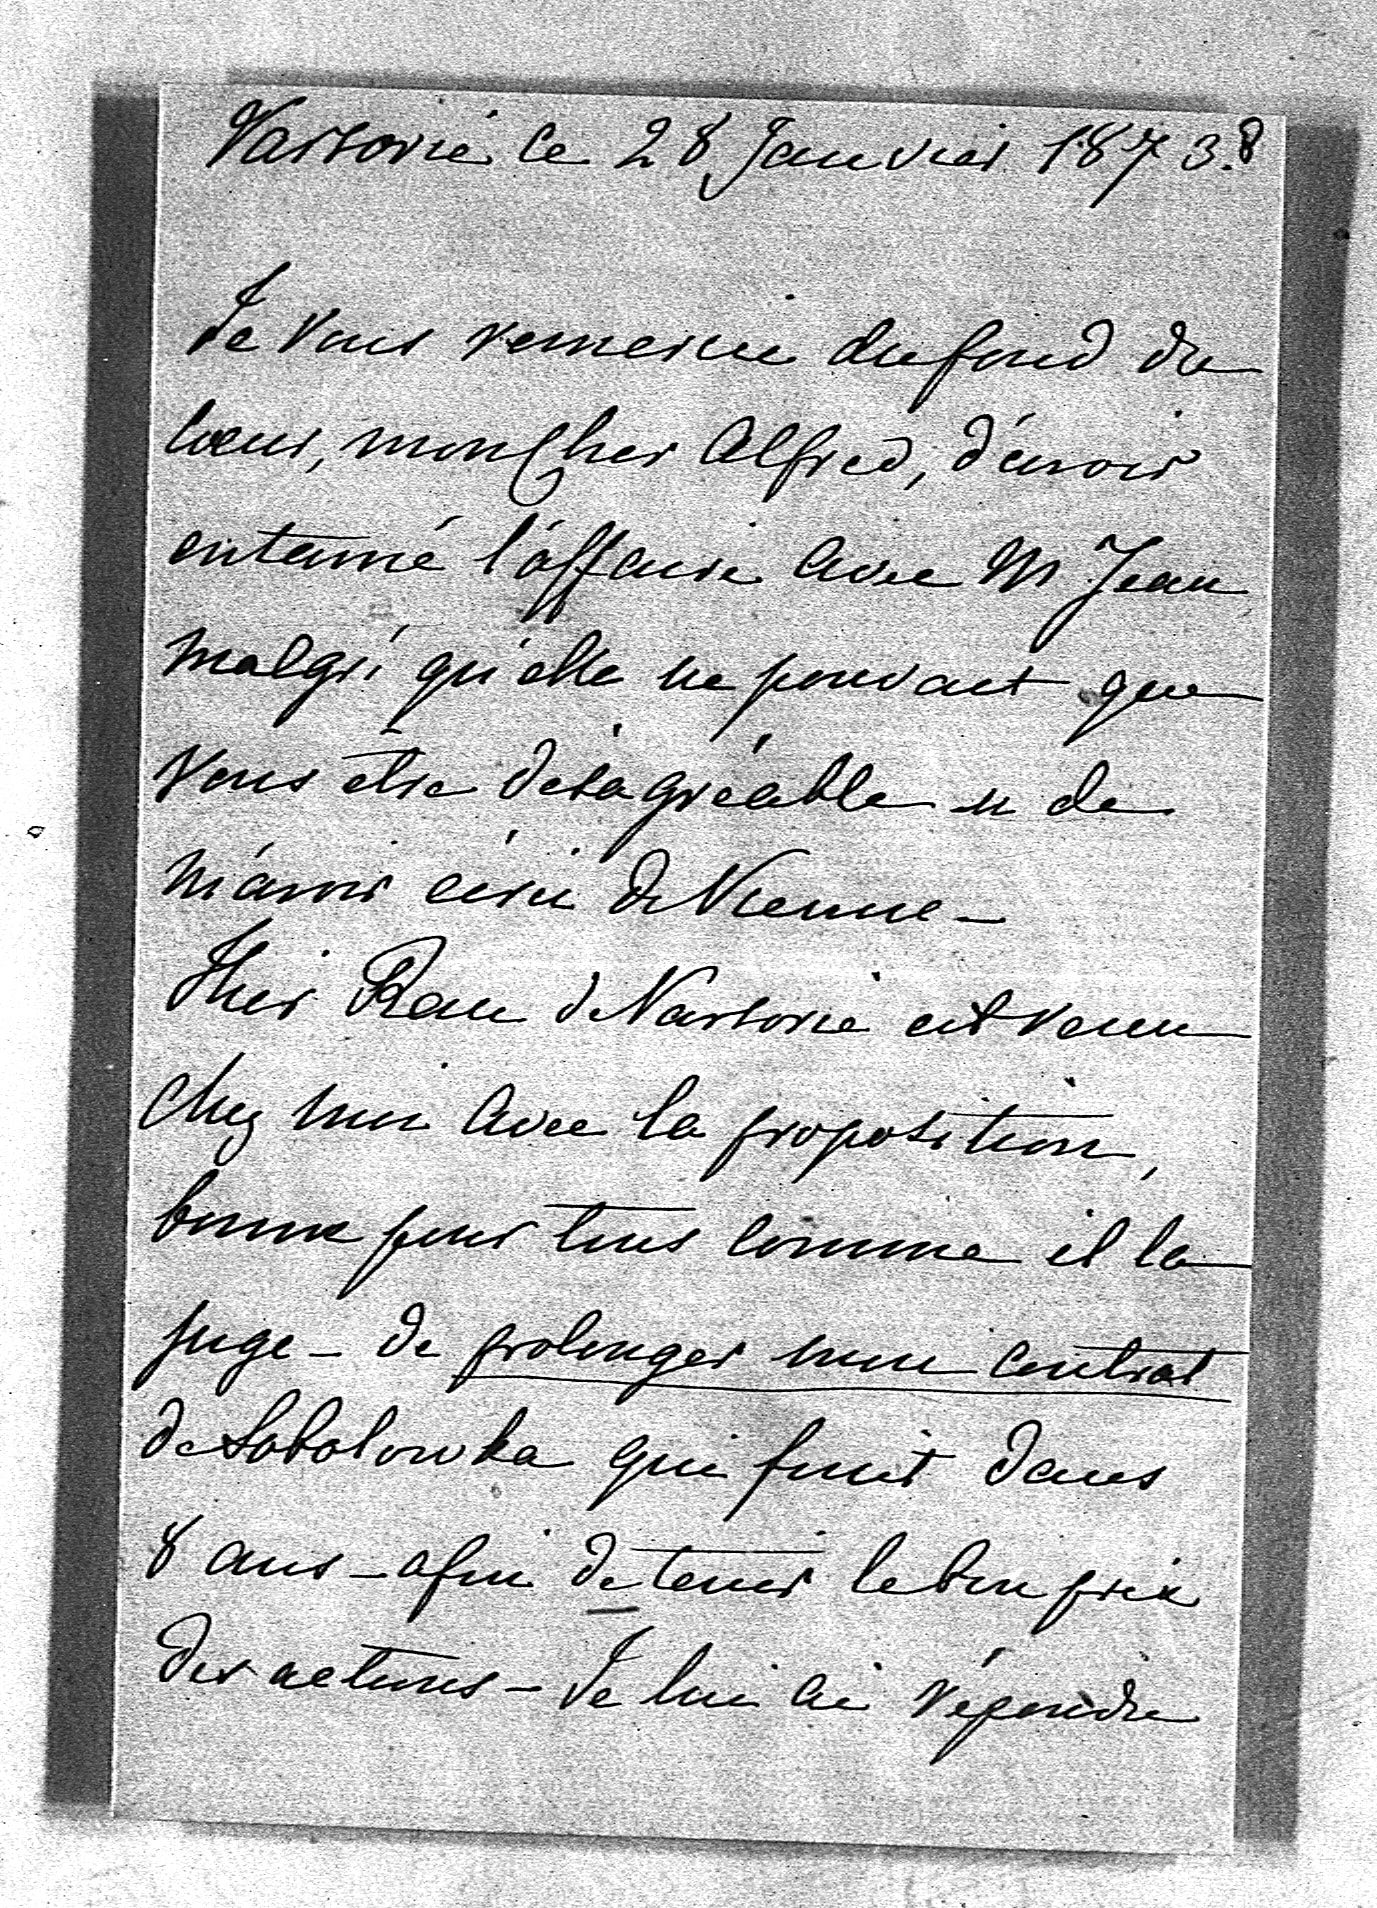 Varsovie ce 28 Janvier 1873.8
Je vous remercie du fond du
coeur, mon Cher Alfred, d'avoir
entamé l'affaire avec M Jean
malgré qu'elle ne pouvait que
vous être desagréable et de
m'avoir écrit de Vienne –
Hier Rau de Varsovie est venu
chez moi avec la proposition,
bonne pour tous comme il la
juge – de prolonger mon contrat
de Sobolowka qui finit dans
8 ans – afin de tenir le bon prix
des actions – Je lui ai répondre